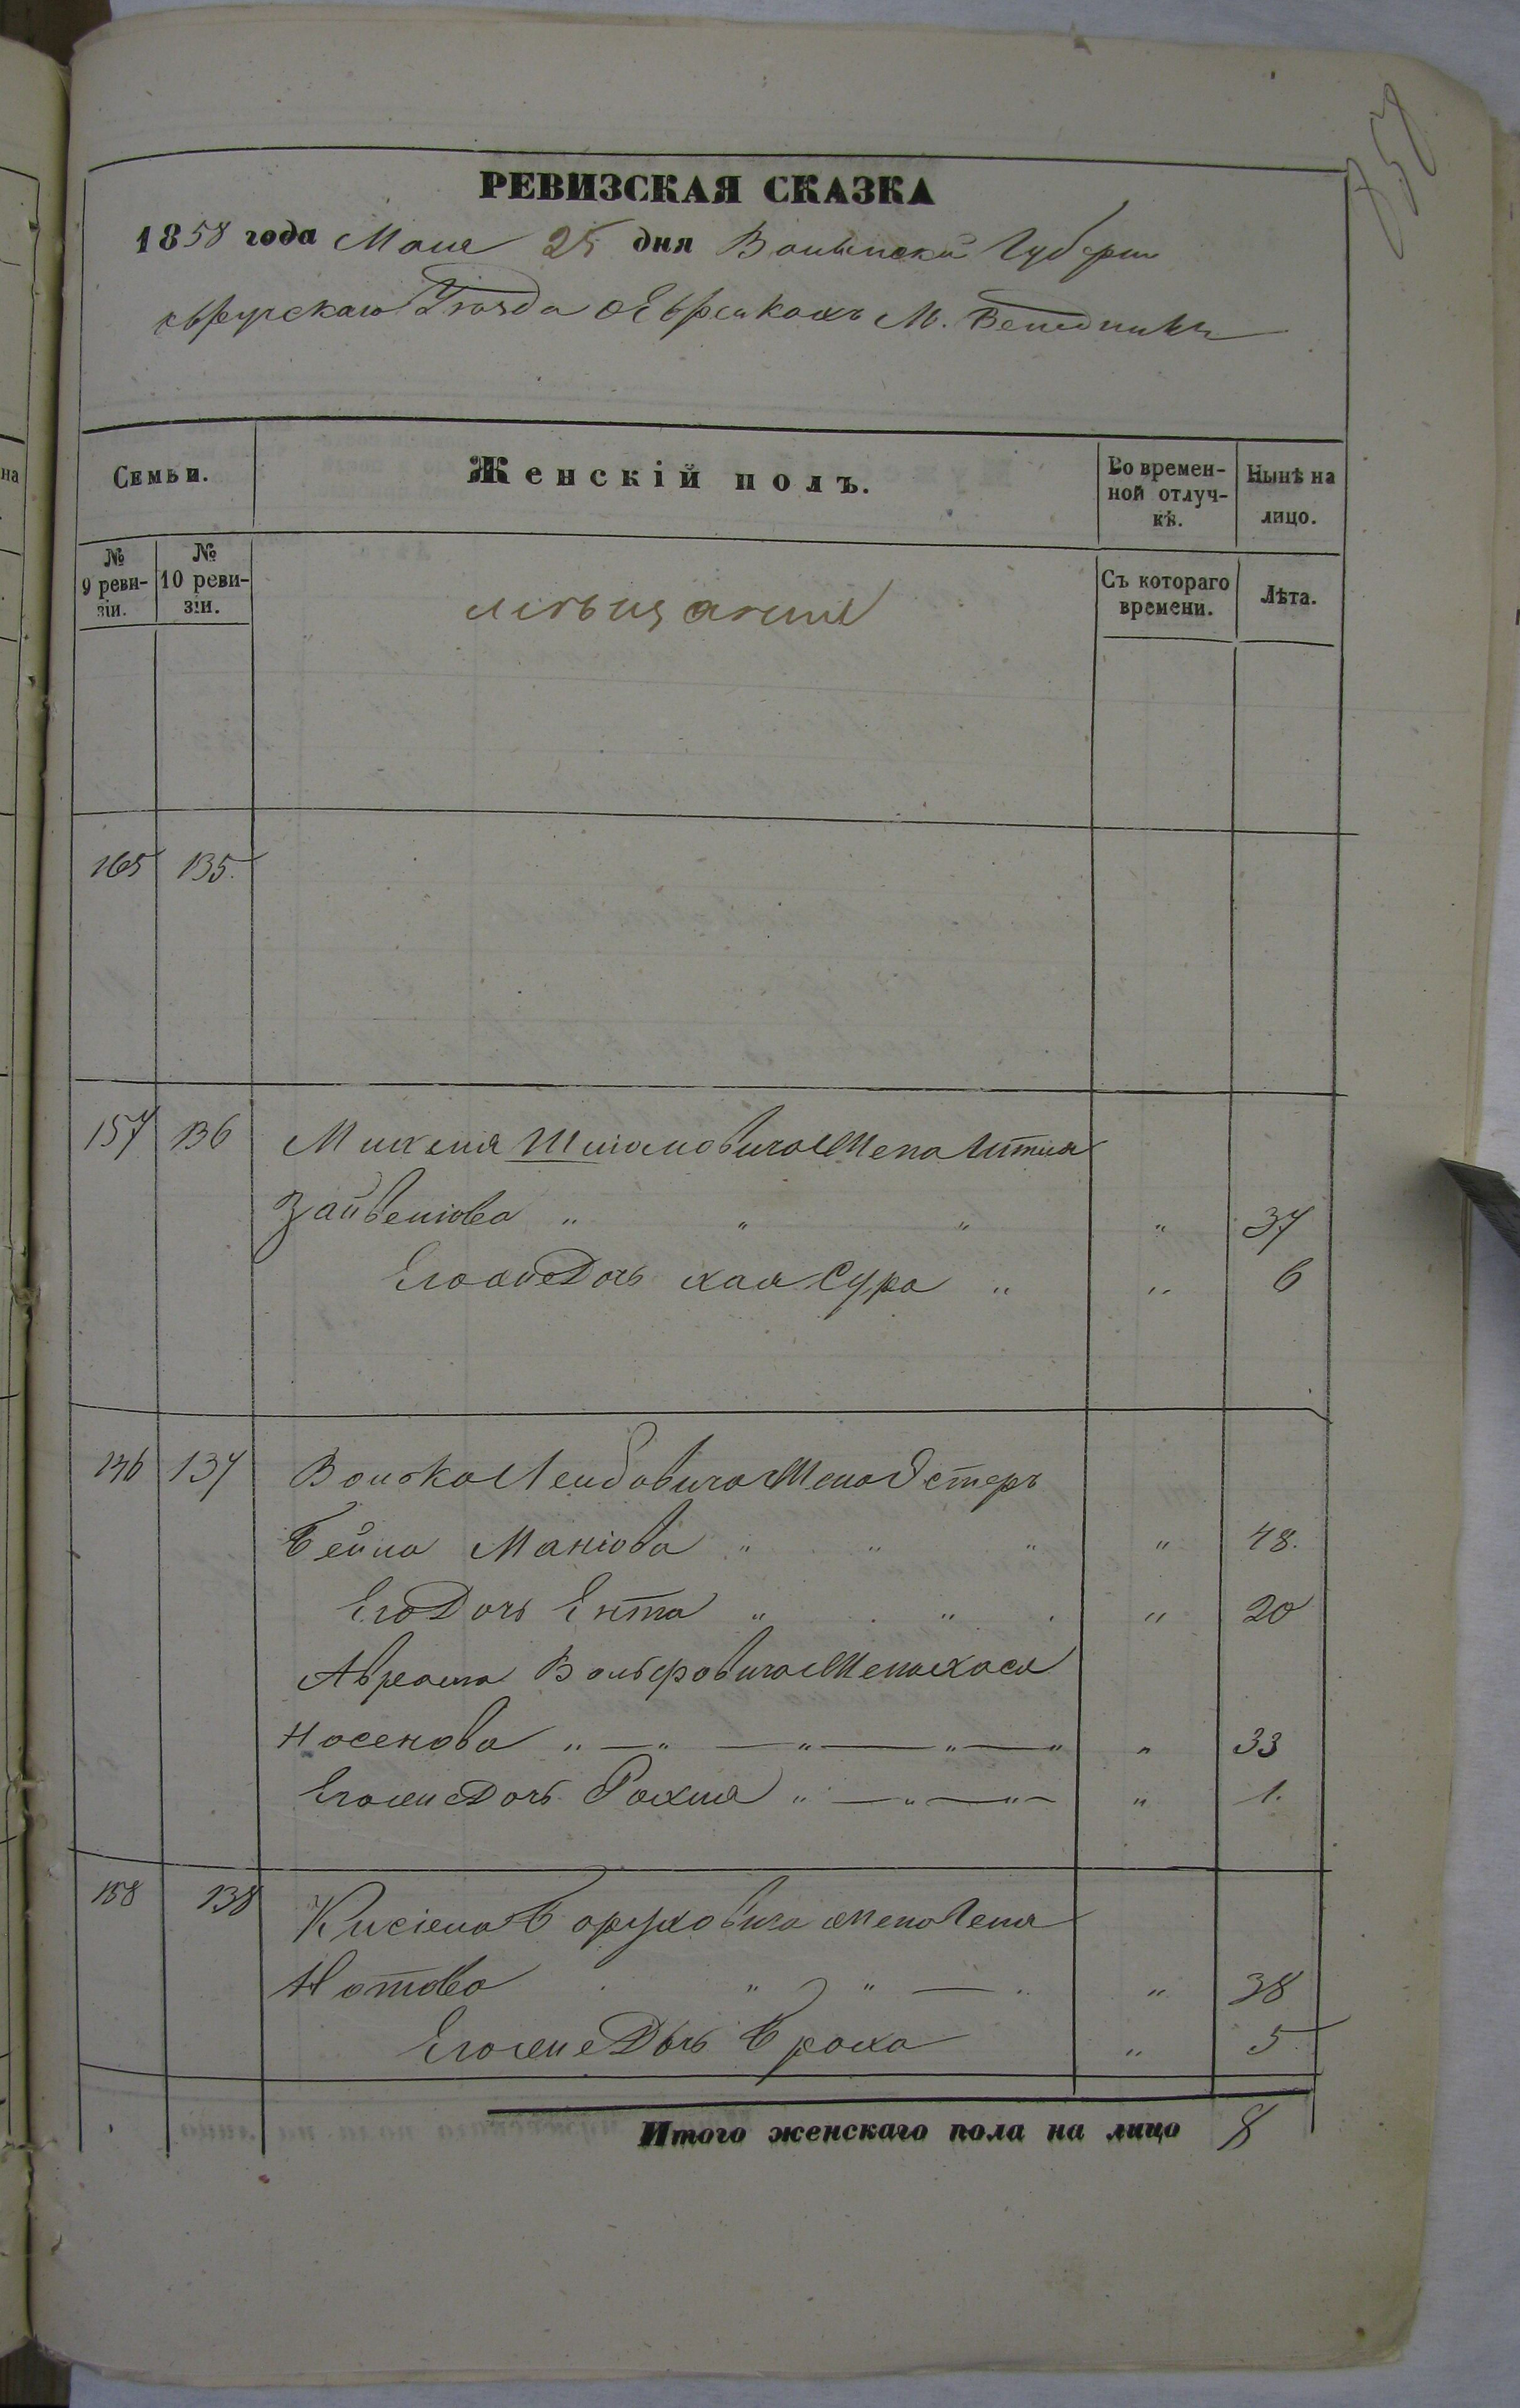 757
РЕВИЗСКАЯ СКАЗКА
1858 года Мая 25 дня Волынской Губернии
Уѣзда о Евреяхъ М.
Семьи.
Женскій полъ.
Во времен-
ной отлуч-
кѣ.
Нынѣ на
лицо.
№
9 реви-
зіи.
№
10 реви-
зіи.
мѣщане
Съ котораго
времени.
Лѣта.
165 135.
157 136 Шліомовича Жена
Зайвелiова " " " " 37
Его же Дочь Хая Сура " " 6
136 137 Волько Лейбовича Жена Эстеръ
Бейла Манiова " " " " 48.
Его Дочь Ента " " " 20
Аврама Вольфовича Жена Хася
Носенова " " " " " " 33
Его же Дочь Рохля " " " " 1.
158 138 Кисіела Боруховича Жена Лея
Нотова " " " 38
Его же Дочь Броха " 5
Итого женскаго пола на лицо 8